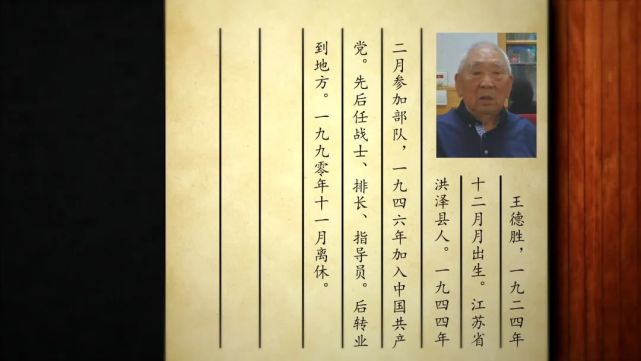 王德胜，一九二四年
十二月月出生。江苏省
洪泽县人。一九四四年
二月参加部队，一九四六年加入中国共产
党。先后任战士、排长、指导员。后转业
到地方。一九九零年十一月离休。